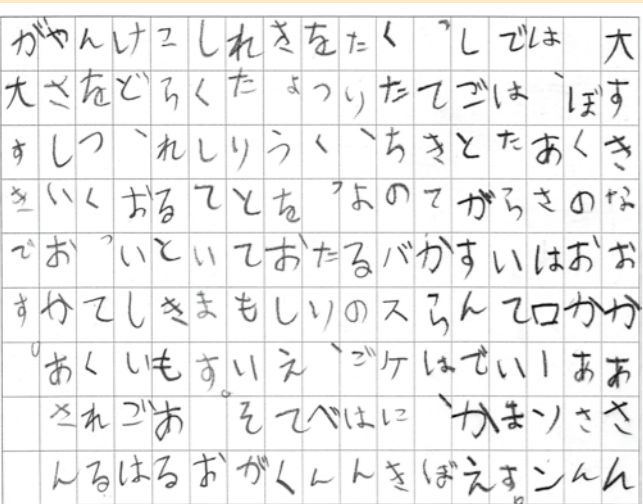 大すきなおかあさん
ぼくのおかあさん
は、あさはローソン
ではたらいています。
しごとがすんでかえ
ってきてからは、ぼ
くたちのバスケにき
たり、よるのごはん
をつくったり、べん
きょうをおしえてく
れたりとてもいそが
しくしています。お
こられるときもある
けど、おいしいごは
んをつくってくれる
やさしいおかあさん
が大すきです。